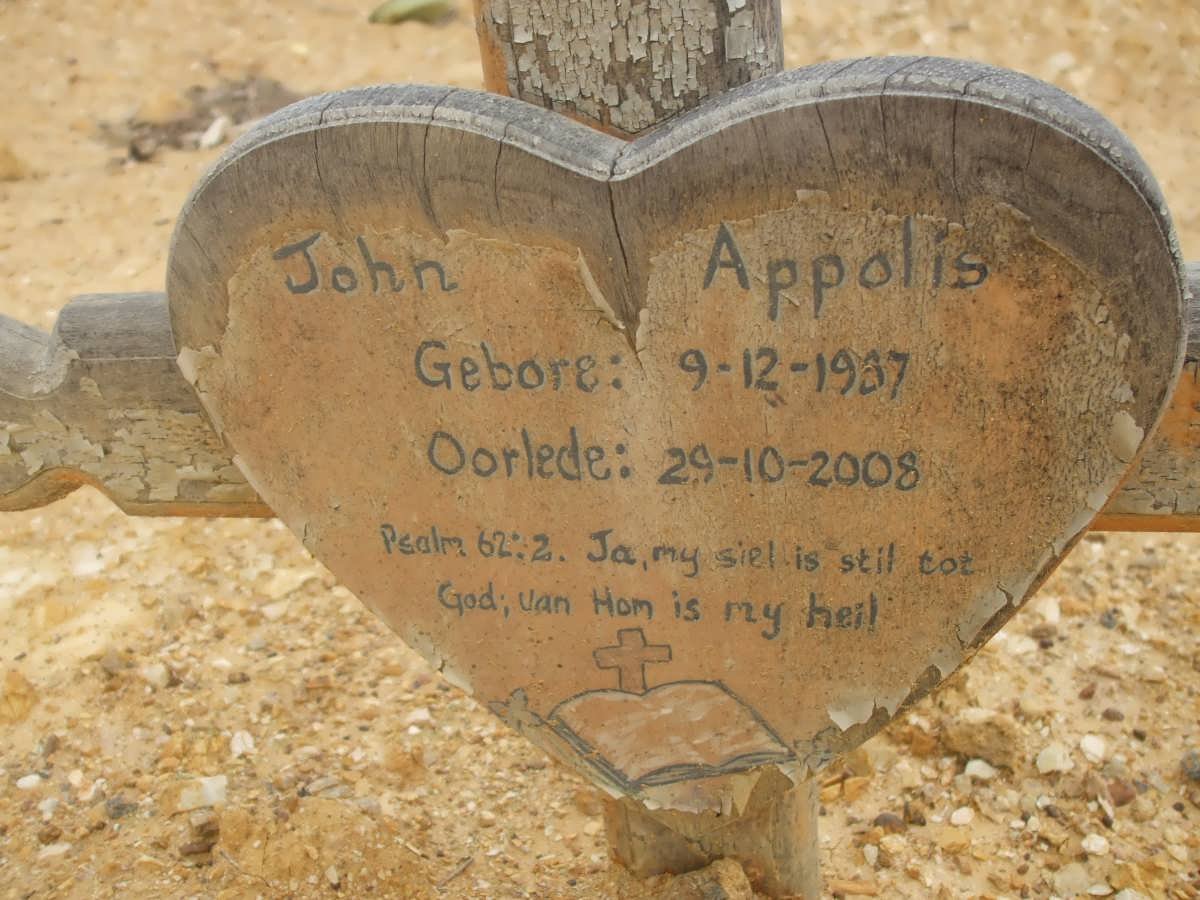 John Appolis
Gebore: 9-12-1937
Oorlede: 29-10-2008
Psalm 62:2. Ja, my siel is stil tot
God; van Hom is my heil